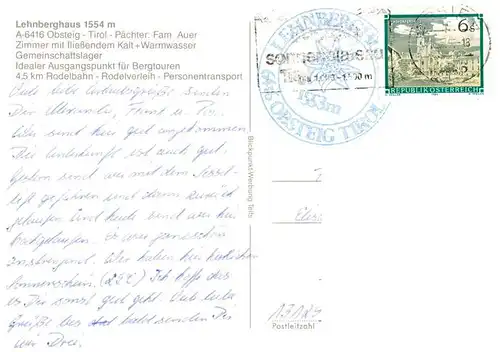 Lehnberghaus 1554 m
A-6416 Obsteig - Tirol - Pächter: Fam Auer
Zimmer mit fließendem Kalt+Warmwasser
Gemeinschaftslager
Idealer Ausgangspunkt für Bergtouren
4,5 km Rodelbahn - Rodelverleih - Personentransport
LEHNBERG
1553m
OBSTEIG TIROL
6
REPUBLIK ÖSTERREICH
Viele liebe senden
Dir Alexander, und
Wir sind hier gut angekommen.
Die Unterkunft ist auch gut.
Gestern sind wir mit dem Sessel-
lift gefahren und dann zurück
gelaufen und heute sind wir hier
hochgelaufen. Es war ganz schön
anstrengend. Wir haben hier herrlichen
Sonnenschein. Ich hoffe das
es Dir sonst gut geht. Viele liebe
Grüße bis bald senden Dir
wir Drei.
Blickpunkt-Werbung Telfs
Postleitzahl